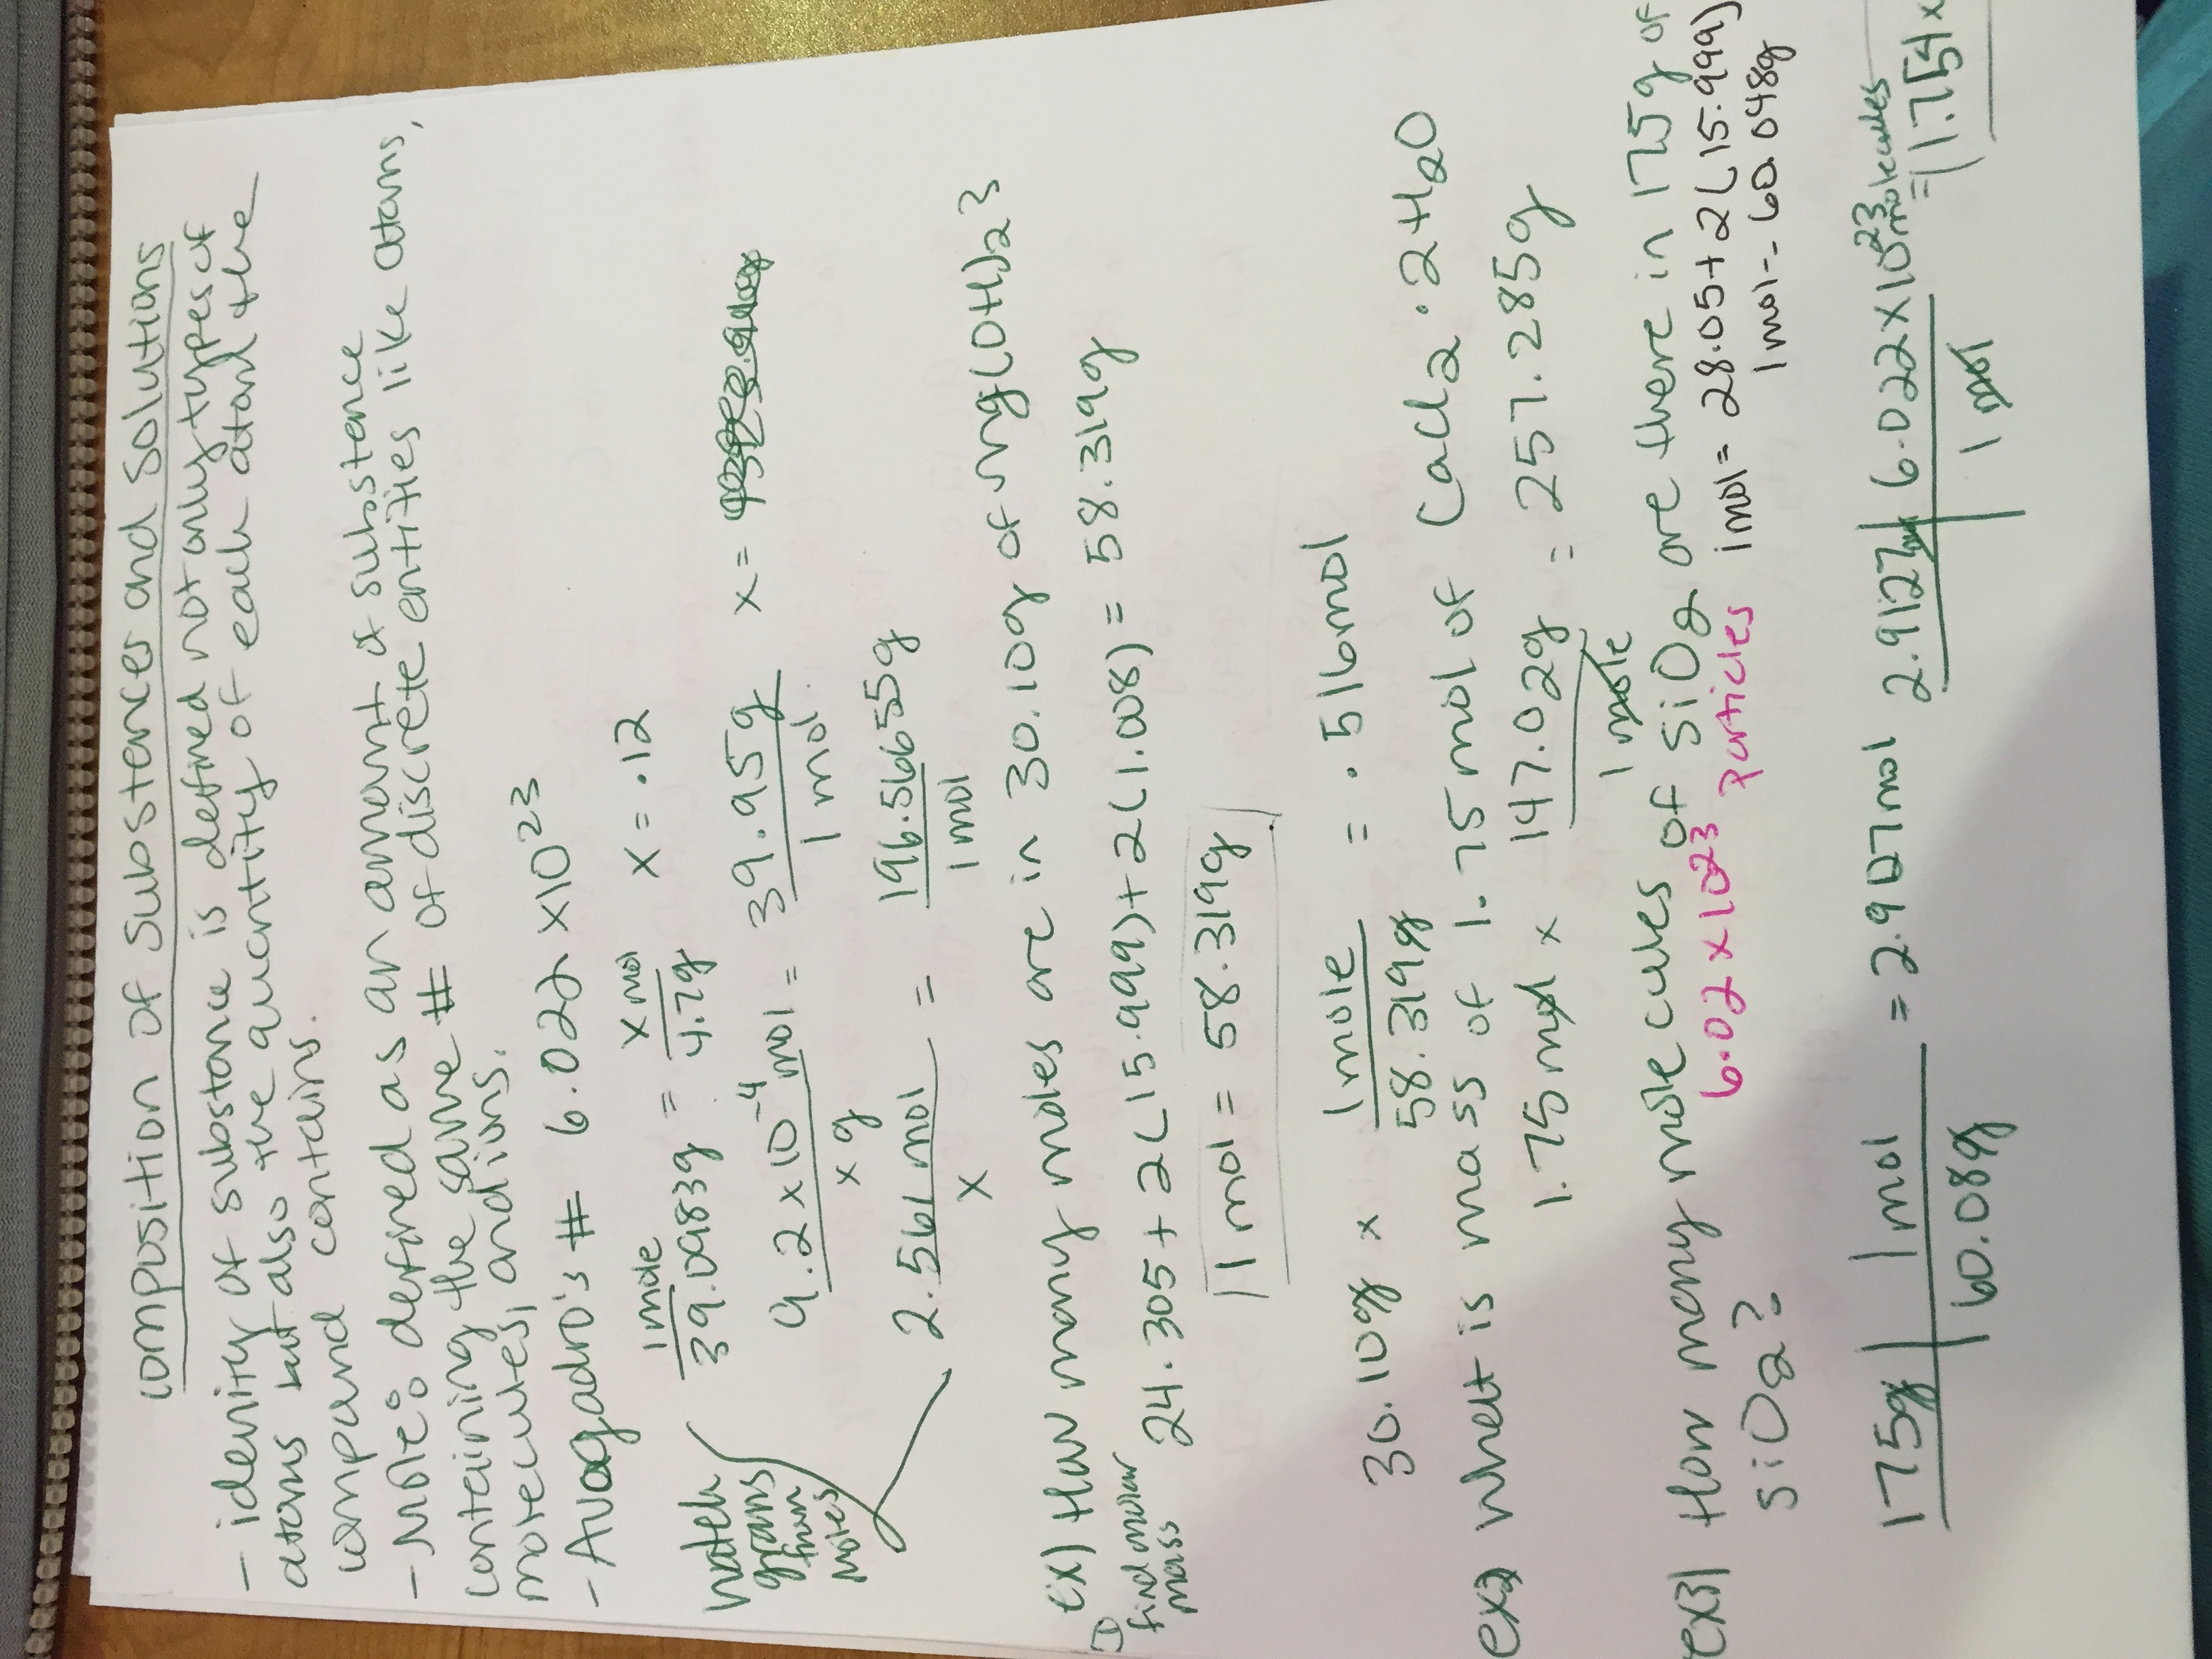 composition of substances and solutions
- idenity of substance is defined not only types of
atoms but also the quantity of each atom the
compound contains.
- Mole: defined as an amount of substance
containing the same # of discrete entities like atoms,
molecules, and ions.
- Avogadro's # 6.022 x10^23
1 mole / 39.0983g = x mol / 4.7g x = .12
match grams then moles
9.2 x 10^-4 mol / x g = 39.95g / 1 mol x =
2.561 mol / x = 196.566655g / 1 mol
ex) How many moles are in 30.10g of mg(OH)2 3
① find molar mass 24.305 + 2(15.999) + 2(1.008) = 58.319g
1 mol = 58.319g
30.10g x 1 mole / 58.319g = .516mol
ex2 What is mass of 1.75 mol of CaCl2 · 2H2O
1.75 mol x 147.02g / 1 mole = 257.285g
ex3) How many molecules of SiO2 are there in 175g of
SiO2? 6.02 x 10^23 particles 1mol = 28.05 + 2(15.999)
1 mol = 60.048g
175g | 1 mol / 60.08g = 2.9127mol 2.9127mol | 6.022 x 10^23 molecules / 1 mol = 1.754 x